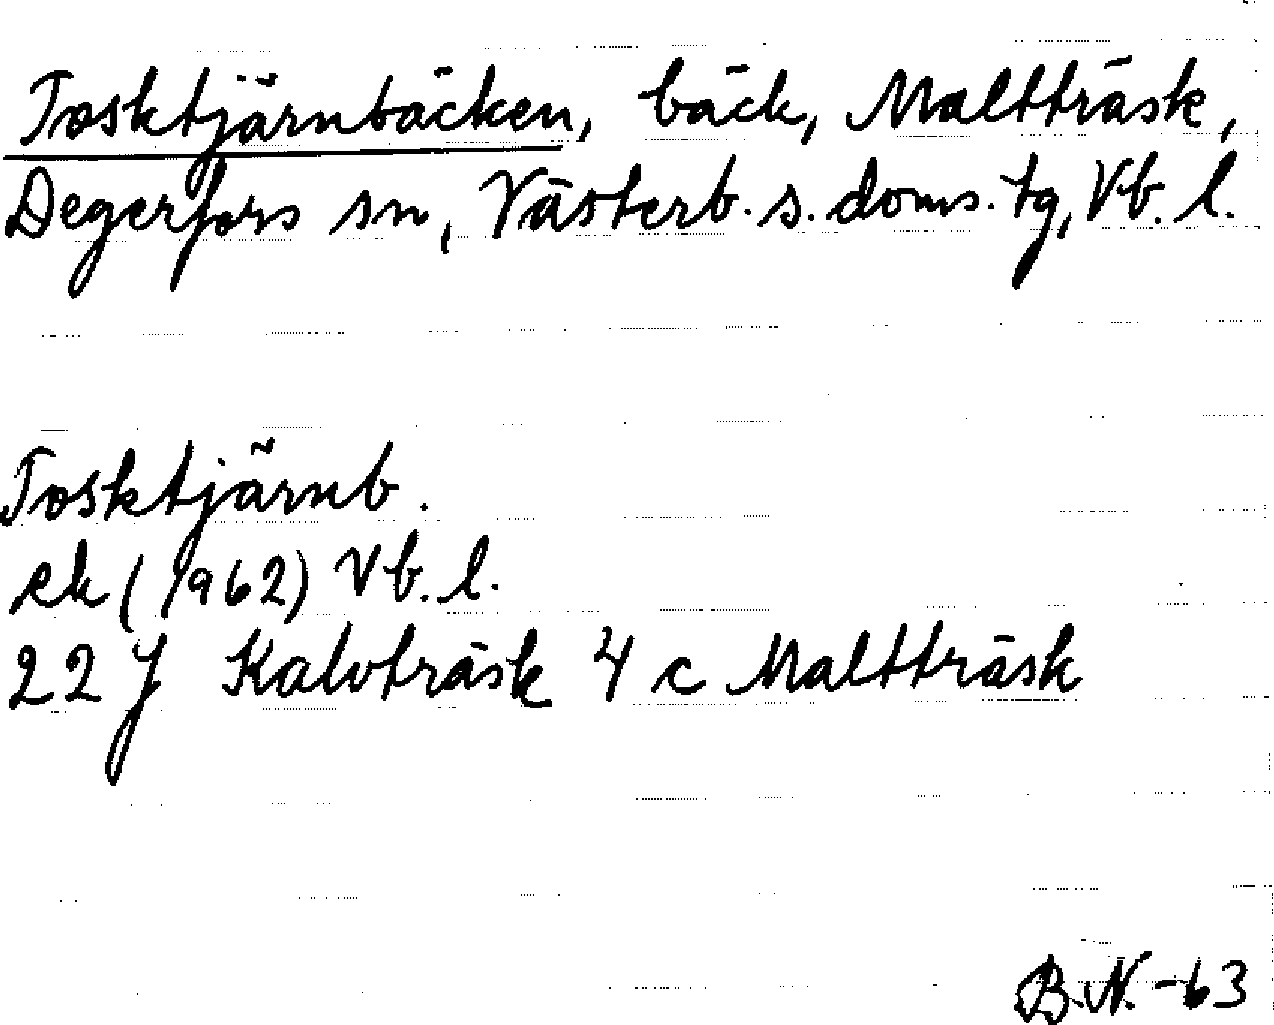 Tosktjärnbäcken, bäck, Maltträsk,
Degerfors sn, Västerb. s. doms. tg, Vb. l.
Tosktjärnb.
ek (1962) Vb. l.
22 J Kalvträsk 4 c Maltträsk
B.N. -63